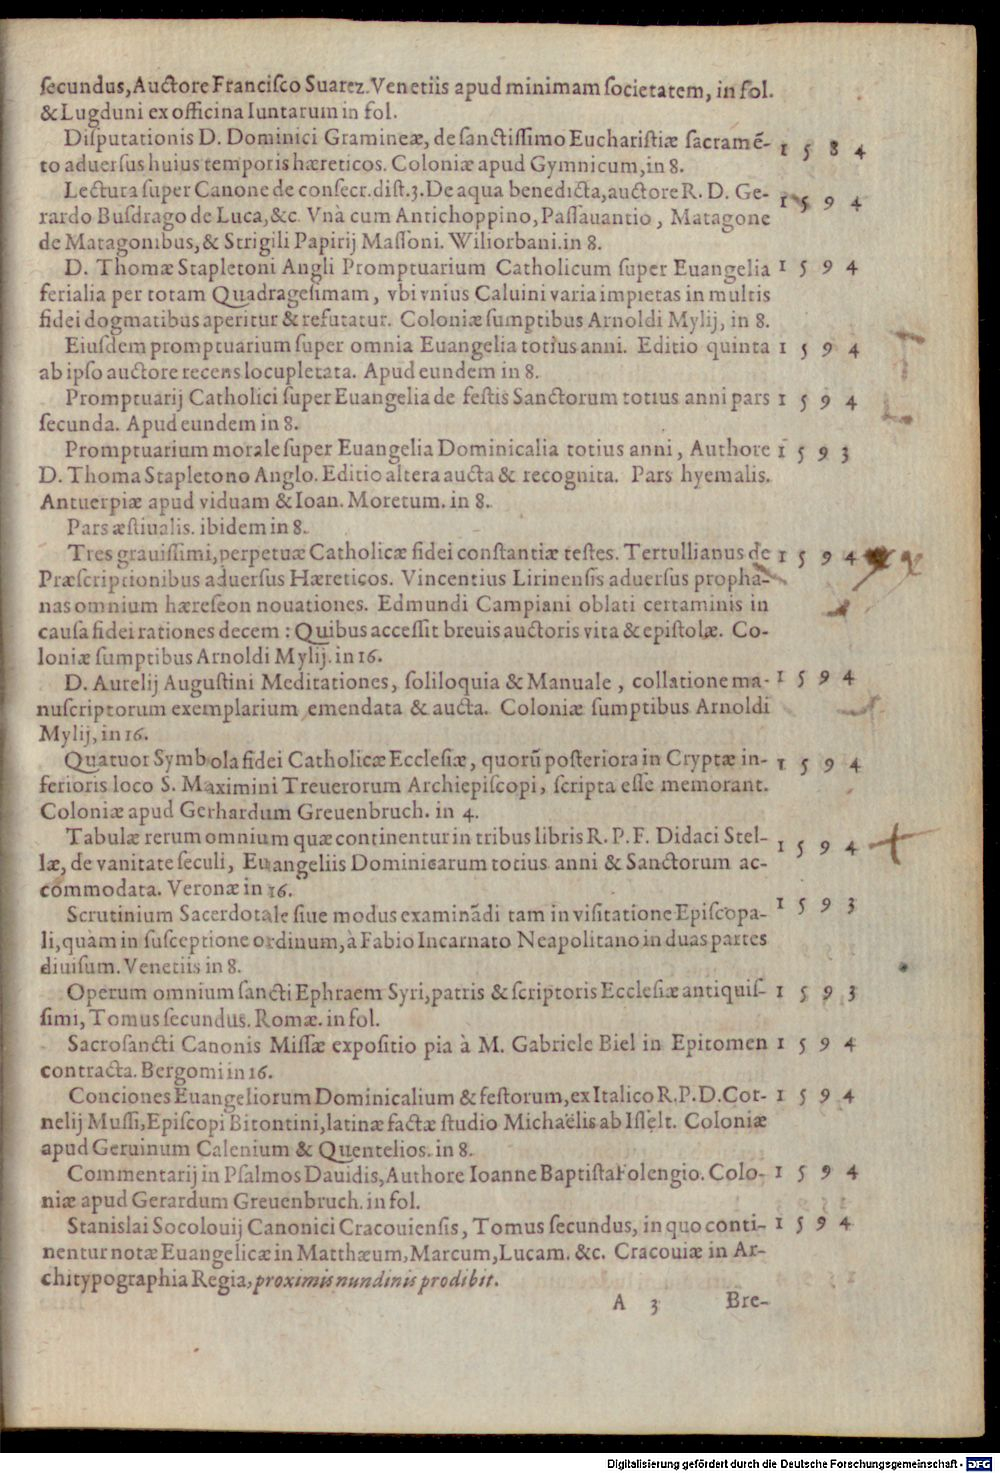 ſecundus, Auctore Franciſco Suarez. Venetiis apud minimam ſocietatem, in fol.
& Lugduni ex officina Iuntarum in fol.
Diſputationis D. Dominici Gramineæ, de ſanctiſſimo Euchariſtiæ ſacramē- 1584
to aduersus huius temporis hæreticos. Coloniæ apud Gymnicum, in 8.
Lectura ſuper Canone de conſecr. diſt. 3. De aqua benedicta, auctore R. D. Ge- 1594
rardo Buſdrago de Luca, &c. Vnà cum Antichoppino, Paſſauantio, Matagone
de Matagonibus, & Strigili Papirij Maſſoni. Wiliorbani. in 8.
D. Thomæ Stapletoni Angli Promptuarium Catholicum ſuper Euangelia 1594
ferialia per totam Quadrageſimam, vbi vnius Caluini varia impietas in multis
fidei dogmatibus aperitur & refutatur. Coloniæ ſumptibus Arnoldi Mylij, in 8.
Eiuſdem promptuarium ſuper omnia Euangelia totius anni. Editio quinta 1594
ab ipſo auctore recens locupletata. Apud eundem in 8.
Promptuarij Catholici ſuper Euangelia de feſtis Sanctorum totius anni pars 1594
ſecunda. Apud eundem in 8.
Promptuarium morale ſuper Euangelia Dominicalia totius anni, Authore 1593
D. Thoma Stapletono Anglo. Editio altera aucta & recognita. Pars hyemalis.
Antuerpiæ apud viduam & Ioan. Moretum. in 8.
Pars æſtiualis. ibidem in 8.
Tres grauiſſimi, perpetuæ Catholicæ fidei conſtantiæ teſtes. Tertullianus de 1594
Præſcriptionibus aduersus Hæreticos. Vincentius Lirinenſis aduersus propha-
nas omnium hæreſeon nouationes. Edmundi Campiani oblati certaminis in
cauſa fidei rationes decem: Quibus acceſſit breuis auctoris vita & epiſtolæ. Co-
loniæ ſumptibus Arnoldi Mylij. in 16.
D. Aurelij Auguſtini Meditationes, ſoliloquia & Manuale, collatione ma- 1594
nuſcriptorum exemplarium emendata & aucta. Coloniæ ſumptibus Arnoldi
Mylij, in 16.
Quatuor Symbola fidei Catholicæ Eccleſiæ, quorū poſteriora in Cryptæ in- 1594
ferioris loco S. Maximini Treuerorum Archiepiſcopi, ſcripta eſſe memorant.
Coloniæ apud Gerhardum Greuenbruch. in 4.
Tabulæ rerum omnium quæ continentur in tribus libris R. P. F. Didaci Stel- 1594
læ, de vanitate ſeculi, Euangeliis Dominicarum totius anni & Sanctorum ac-
commodata. Veronæ in 16.
Scrutinium Sacerdotale ſiue modus examinādi tam in viſitatione Epiſcopa- 1593
li, quàm in ſuſceptione ordinum, à Fabio Incarnato Neapolitano in duas partes
diuiſum. Venetiis in 8.
Operum omnium ſancti Ephraem Syri, patris & ſcriptoris Eccleſiæ antiquiſ- 1593
ſimi, Tomus ſecundus. Romæ. in fol.
Sacroſancti Canonis Miſſæ expoſitio pia à M. Gabriele Biel in Epitomen 1594
contracta. Bergomi in 16.
Conciones Euangeliorum Dominicalium & feſtorum, ex Italico R. P. D. Cor- 1594
nelij Muſſi, Epiſcopi Bitontini, latinæ factæ ſtudio Michaëlis ab Iſſelt. Coloniæ
apud Geruinum Calenium & Quentelios. in 8.
Commentarij in Pſalmos Dauidis, Authore Ioanne Baptiſta Folengio. Colo- 1594
niæ apud Gerardum Greuenbruch. in fol.
Stanislai Socolouij Canonici Cracouienſis, Tomus ſecundus, in quo conti- 1594
nentur notæ Euangelicæ in Matthæum, Marcum, Lucam. &c. Cracouiæ in Ar-
chitypographia Regia, proximis nundinis prodibit.
A 3 Bre-
Digitalisierung gefördert durch die Deutsche Forschungsgemeinschaft - DFG